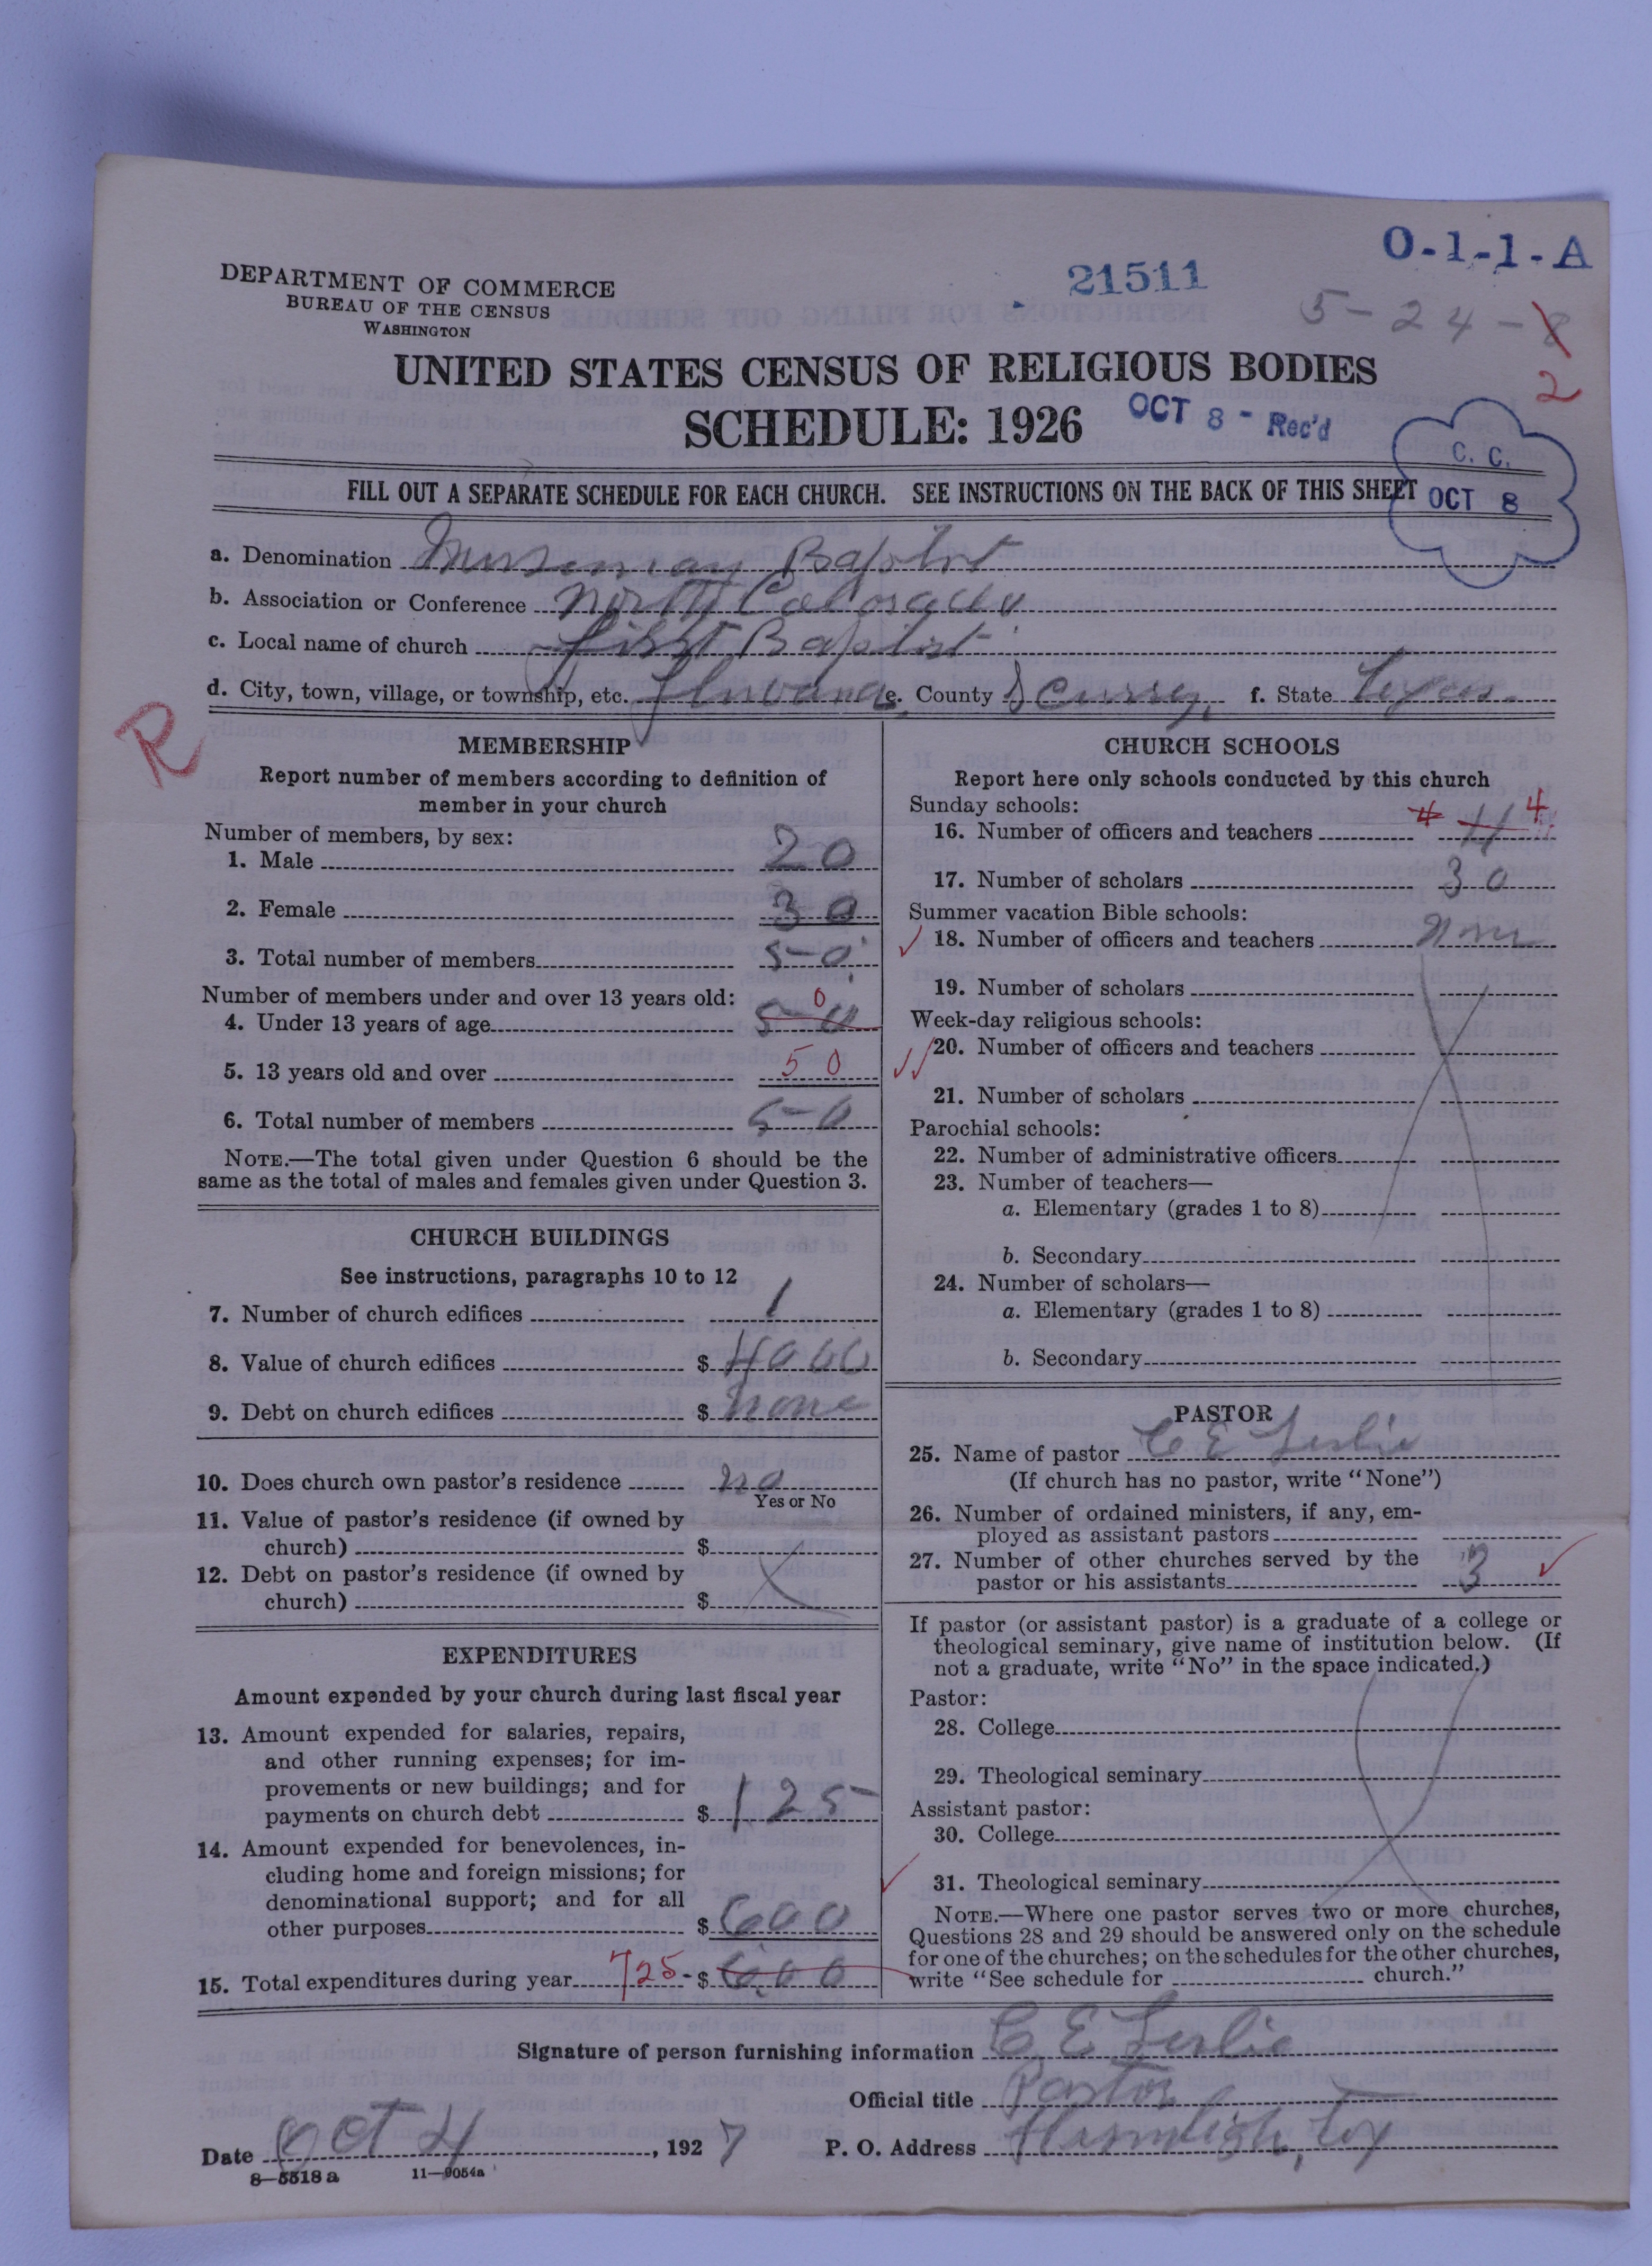 O-1-1-A
DEPARTMENT OF COMMERCE
BUREAU OF THE CENSUS
WASHINGTON
21511
5-24-8
2
UNITED STATES CENSUS OF RELIGIOUS BODIES
SCHEDULE: 1926
OCT 8 - Rec'd
C. C.
OCT 8
FILL OUT A SEPARATE SCHEDULE FOR EACH CHURCH. SEE INSTRUCTIONS ON THE BACK OF THIS SHEET
a. Denomination Missionary Baptist
b. Association or Conference North Colorado
c. Local name of church First Baptist
d. City, town, village, or township, etc. Fluvanna e. County Scurry, f. State Texas
R
MEMBERSHIP
Report number of members according to definition of
member in your church
Number of members, by sex:
1. Male 20
2. Female 30
3. Total number of members 50
Number of members under and over 13 years old: 0
4. Under 13 years of age 50
5. 13 years old and over 50
6. Total number of members 50
NOTE.—The total given under Question 6 should be the
same as the total of males and females given under Question 3.
CHURCH BUILDINGS
See instructions, paragraphs 10 to 12
7. Number of church edifices 1
8. Value of church edifices $ 4000
9. Debt on church edifices $ none
10. Does church own pastor's residence no
Yes or No
11. Value of pastor's residence (if owned by
church) $
12. Debt on pastor's residence (if owned by
church) $
EXPENDITURES
Amount expended by your church during last fiscal year
13. Amount expended for salaries, repairs,
and other running expenses; for im-
provements or new buildings; and for
payments on church debt $ 125
14. Amount expended for benevolences, in-
cluding home and foreign missions; for
denominational support; and for all
other purposes $ 600
15. Total expenditures during year 725- $ 600
CHURCH SCHOOLS
Report here only schools conducted by this church
Sunday schools:
16. Number of officers and teachers 4 4
17. Number of scholars 30
Summer vacation Bible schools:
18. Number of officers and teachers None
19. Number of scholars
Week-day religious schools:
20. Number of officers and teachers
21. Number of scholars
Parochial schools:
22. Number of administrative officers
23. Number of teachers—
a. Elementary (grades 1 to 8)
b. Secondary
24. Number of scholars—
a. Elementary (grades 1 to 8)
b. Secondary
PASTOR
25. Name of pastor C E Leslie
(If church has no pastor, write "None")
26. Number of ordained ministers, if any, em-
ployed as assistant pastors
27. Number of other churches served by the
pastor or his assistants 3
If pastor (or assistant pastor) is a graduate of a college or
theological seminary, give name of institution below. (If
not a graduate, write "No" in the space indicated.)
Pastor:
28. College
29. Theological seminary
Assistant pastor:
30. College
31. Theological seminary
NOTE.—Where one pastor serves two or more churches,
Questions 28 and 29 should be answered only on the schedule
for one of the churches; on the schedules for the other churches,
write "See schedule for church."
Signature of person furnishing information C E Leslie
Official title Pastor
Date Oct 4, 1927 P. O. Address Hermleigh, Tex
8—5518 a 11—9054a